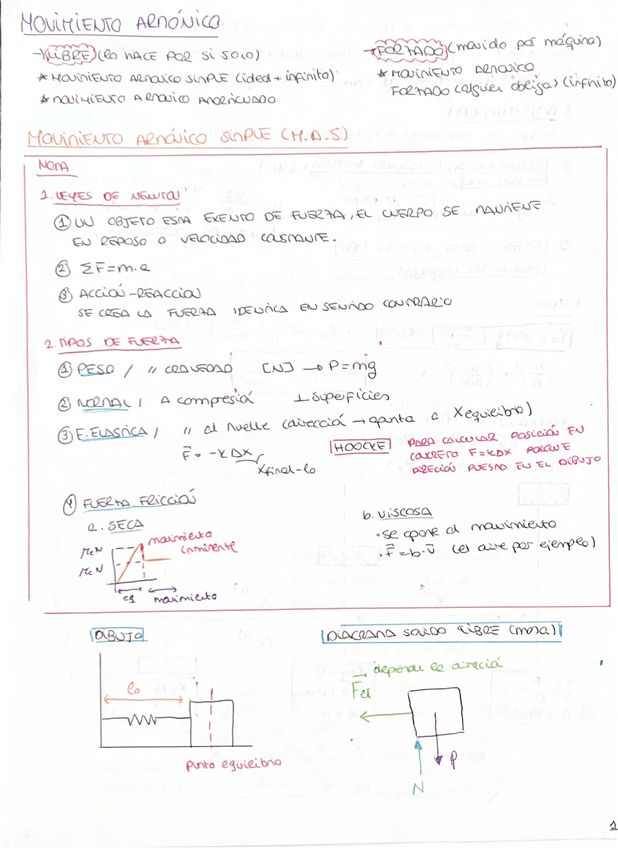 MOVIMIENTO ARMÓNICO
→ LIBRE (LO HACE POR SI SOLO)
* MOVIMIENTO ARMONICO SIMPLE (ideal + infinito)
* MOVIMIENTO ARMONICO AMORTIGUADO
→ FORZADO (movido por máquina)
* MOVIMIENTO ARMONICO
FORZADO (alguien obliga) (infinito)
MOVIMIENTO ARMÓNICO SIMPLE (M.A.S)
NOTA
1. LEYES DE NEWTON
① UN OBJETO ESTA EXENTO DE FUERZA, EL CUERPO SE MANTIENE
EN REPOSO O VELOCIDAD CONSTANTE.
② ΣF = m.a
③ ACCIÓN-REACCION
SE CREA LA FUERZA IDENTICA EN SENTIDO CONTRARIO
2. TIPOS DE FUERZA
① PESO / // GRAVEDAD [N] → P=mg
② NORMAL / A compresión ⊥ superficies
③ F. ELASTICA / // al muelle (dirección → apunta a Xequilibrio)
F = -K ΔX
Xfinal-lo
HOOCKE
PARA CALCULAR POSICIÓN EN
CONCRETO F=KDX PORQUE
DIRECIÓN PUESTO EN EL DIBUJO
④ FUERZA FRICCIÓN
a. SECA
movimiento
inminente
MeN
McN
eq
movimiento
b. VISCOSA
· se opone al movimiento
· F = b.v (el aire por ejemplo)
DIBUJO
lo
punto equilibrio
DIAGRAMA SOLIDO LIBRE (masa)
depende la dirección
Fel
P
N
1